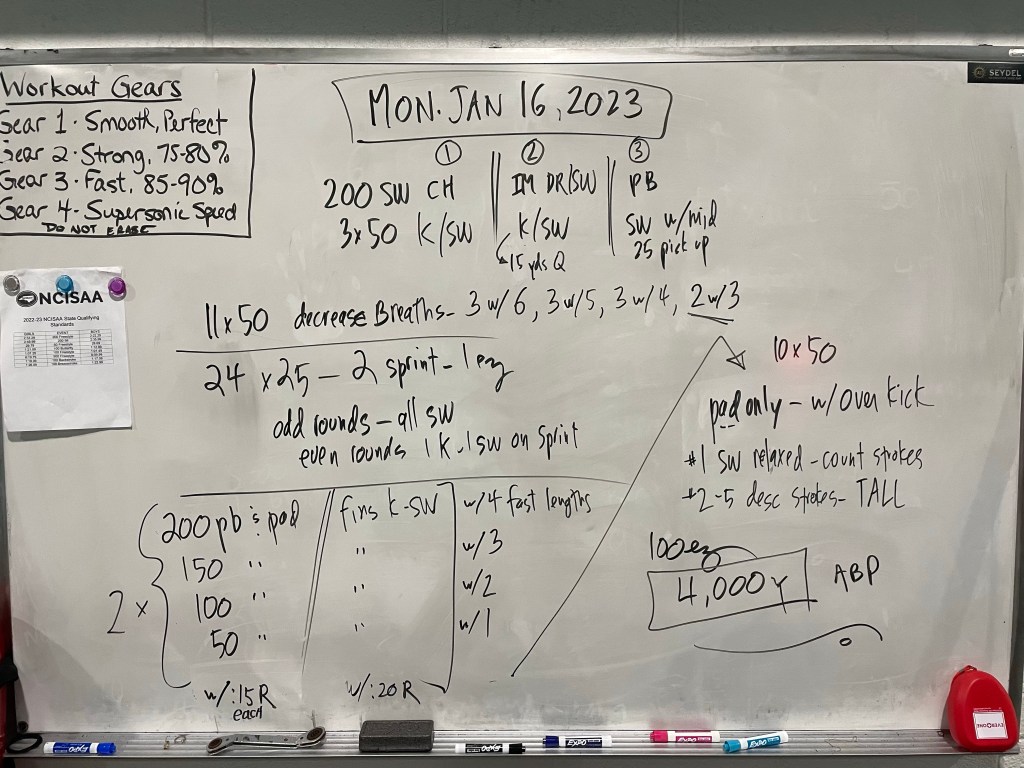 Workout Gears
Gear 1 · Smooth, Perfect
Gear 2 · Strong, 75-80%
Gear 3 · Fast, 85-90%
Gear 4 - Supersonic Speed
DO NOT ERASE
SEYDEL
MON. JAN 16, 2023
① ② ③
200 SW CH || IM DR/SW || PB
3x50 K/SW K/SW SW w/mid
15 yds Q 25 pick up
NCISAA
2022-23 NCISAA State Qualifying
Standards
11x50 decrease Breaths - 3 w/6, 3 w/5, 3 w/4, 2 w/3
24 x 25 - 2 sprint - 1 ez
odd rounds - all SW
even rounds 1K · 1 SW on Sprint
2 x
200 pb : pad fins K-SW w/4 fast lengths
150 " " w/3
100 " " w/2
50 " " w/1
w/:15 R w/:20 R
each
10x50
pad only - w/ over kick
#1 SW relaxed - count strokes
#2-5 desc strokes - TALL
100 ez
4,000 Y ABP
EXPO
EXPO
EXPO
EXPO
EXPO